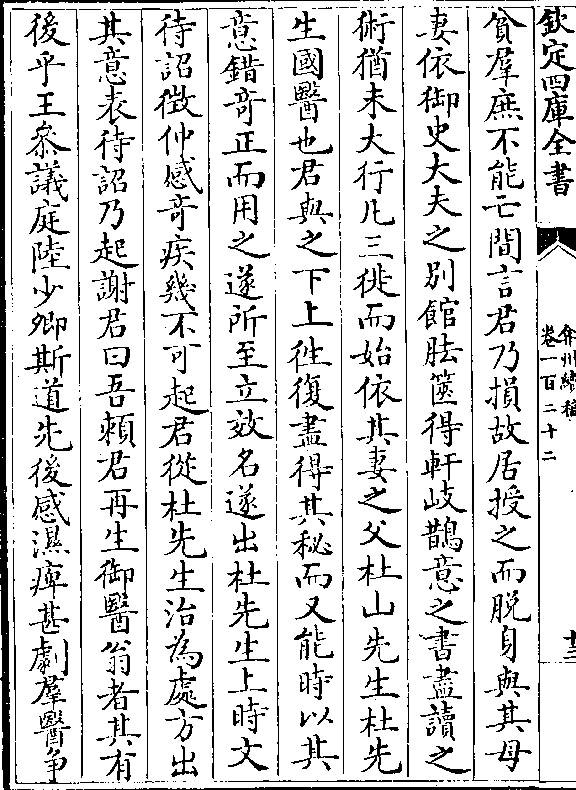 欽定四庫全書
弇州續稿
卷一百二十二
十三
貧羣庶不能亡間言君乃損故居授之而脱身與其母
妻依御史大夫之别館胠篋得軒岐鵲意之書盡讀之
術猶未大行凡三徙而始依其妻之父杜山先生杜先
生國醫也君與之下上徃復盡得其秘而又能時以其
意錯奇正而用之遂所至立效名遂出杜先生上時文
待詔徴仲感奇疾幾不可起君從杜先生治為處方出
其意表待詔乃起謝君曰吾頼君再生御醫翁者其有
後乎王叅議庭陸少卿斯道先後感濕痺甚劇羣醫争